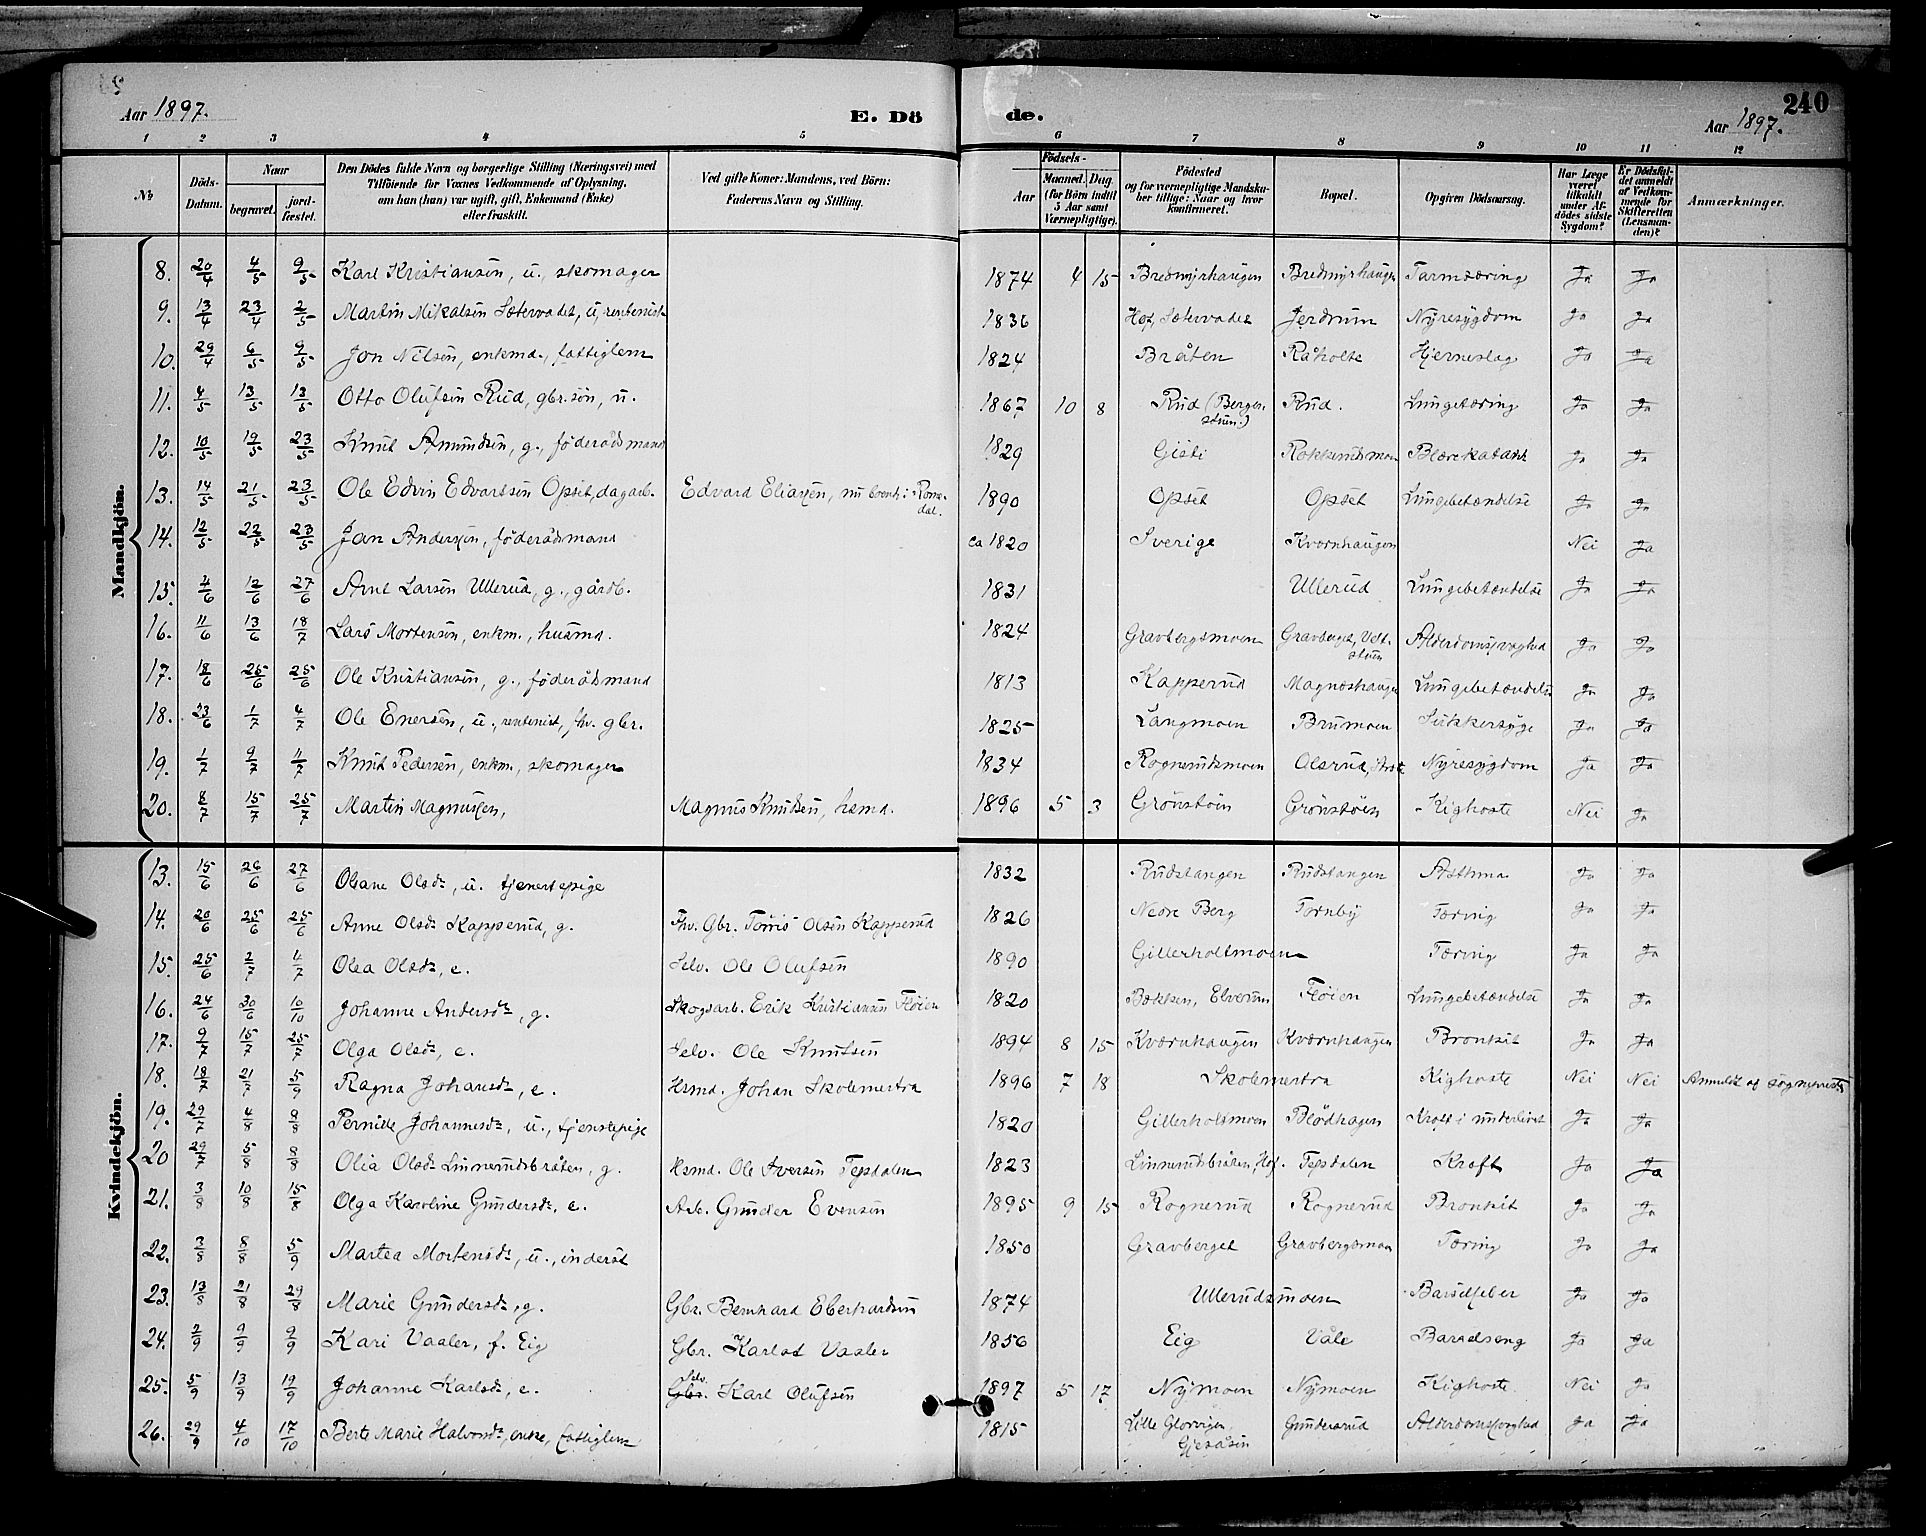 Aar 1897. E. Dö de. Aar 1897. 240
1 2 3 4 5 6 7 8 9 10 11 12
No. Döds-Datum. Naar begravet. jord-fæstet. Den Dödes fulde Navn og borgerlige Stilling (Næringsvei) med Tilföiende for Voxnes Vedkommende af Oplysning, om han (hun) var ugift, gift, Enkemand (Enke) eller fraskilt. Ved gifte Koner: Mandens, ved Börn: Faderens Navn og Stilling.
Födsels- Aar Maaned. Dag (for Börn indtil 5 Aar samt Værnepligtige). Födested og for værnepligtige Mandskaber tillige: Naar og hvor konfirmeret. Bopæl. Opgiven Dödsaarsag. Har Læge været tilkaldt under Afdödes sidste Sygdom? Er Dödsfaldet anmeldt af Vedkommende for Skifteretten (Lensmanden)? Anmærkninger.
Mandkjön.
8. 20/4 4/5 9/5 Karl Kristiansen, u., skomager 1874 4 15 Bredmyrhaugen Bredmyrhaugen Tarmtæring Ja Ja
9. 13/4 23/4 2/5 Martin Mikalsen Sætervadet, u., rentenist 1836 Hof, Sætervadet Jerdrum Nyresygdom Ja Ja
10. 29/4 6/5 9/5 Jon Nilsen, enkmd., fattiglem 1824 Bråten Råholte Hjerneslag Ja Ja
11. 4/5 13/5 13/5 Otto Olufsen Rud, gbr.søn, u. 1867 10 8 Rud (Bergen-stuen.) Rud. Lungetæring Ja Ja
12. 10/5 19/5 23/5 Knut Amundsen, g., föderådsmand 1829 Gisti Rokkendsmoen Blærekatarrh Ja Ja
13. 14/5 21/5 23/5 Ole Edvin Edvartsen Opset, dagarb. Edvard Eliassen, nu boende i Romsdal. 1890 Opset Opset Lungebetændelse Ja Ja
14. 12/5 22/5 23/5 Jan Anderssen, föderådsmand ca 1820 Sverige Kvernhaugen Nei Ja
15. 4/6 12/6 27/6 Arne Larsen Ullerud, g., gårdb. 1831 Ullerud Lungebetændelse Ja Ja
16. 11/6 13/6 18/7 Lars Mortensen, enkm., husmd. 1824 Gravbergsmoen Gravberget, Vest-stuen Alderdomssvaghed Ja Ja
17. 18/6 25/6 25/6 Ole Kristiansen, g., föderådsmand 1813 Kapperud Magneshaugen Lungebetændelse Ja Ja
18. 23/6 1/7 4/7 Ole Enersen, u., rentenist, fhv. gbr. 1825 Langmoen Brumoen Sukkersyge Ja Ja
19. 1/7 9/7 11/7 Knut Pedersen, enkm., skomager 1834 Rognerudsmoen Olsrud, Nyresygdom Ja Ja
20. 8/7 15/7 25/7 Martin Magnussen, Magnus Knudsen, hsmd. 1896 5 3 Grönstöen Grönstöen Kighoste Nei Ja
Kvindekjön.
13. 15/6 26/6 27/6 Oleane Olsdr, u. tjenestepige 1832 Rudstangen Rudstangen Asthma Ja Ja
14. 20/6 25/6 25/6 Anne Olsdr Kapperud, g. Fhv. Gbr. Torris Olsen Kapperud 1826 Nedre Berg Tornby Tæring Ja Ja
15. 25/6 2/7 4/7 Olea Olsdr, e. Selv. Ole Olufsen 1890 Gillerholtmoen Tæring Ja Ja
16. 24/6 30/6 10/10 Johanne Andersdr, g. Skogsarb. Erik Kristiansen Flöien 1820 Bækken, Elverum Flöien Lungebetændelse Ja Ja
17. 9/7 15/7 25/7 Olga Olsdr, e. Selv. Ole Knutsen 1894 8 15 Kværnhaugen Kværnhaugen Bronkit Ja Ja
18. 18/7 21/7 5/9 Ragna Johansdr, e. Hsmd. Johan Skolemestra 1896 7 18 Skolemestra Kighoste Nei Nei Anmeldt af sogneprest
19. 29/7 4/8 8/8 Pernille Johannesdr, u., tjenstepige 1820 Gillerholtmoen Blødhagen Kræft i underlivet Ja Ja
20 29/7 5/8 8/8 Olia Olsdr Linnerudsbråten, g. Hsmd. Ole Iversen Tepsdalen 1823 Linnerudsbråten, Hof. Tepsdalen Kræft Ja Ja
21. 3/8 10/8 15/8 Olga Karoline Gundersdr, e. Arb. Gunder Evensen 1895 9 15 Rognerud Rognerud Bronkit Ja Ja
22. 3/8 8/8 5/9 Martea Mortensdr, u., inderst 1850 Gravberget Gravbergsmoen Tæring Ja Ja
23. 13/8 21/8 29/8 Marie Gundersdr, g. Gbr. Bernhard Eberhardsen 1874 Ullerudsmoen Barselfeber Ja Ja
24. 2/9 9/9 9/9 Kari Vaaler, f. Eig Gbr. Karlot Vaaler 1856 Eig Våle Barselseng Ja Ja
25. 5/9 13/9 19/9 Johanne Karlsdr, e. Selv. Gbr. Karl Olufsen 1897 5 17 Nymoen Nymoen Kighoste Nei Ja
26. 29/9 4/10 17/10 Berte Marie Halvorsdr, enke, fattiglem 1815 Lille Glorvigen, Gjesåsen Gundersrud Alderdomssvaghed Ja Ja